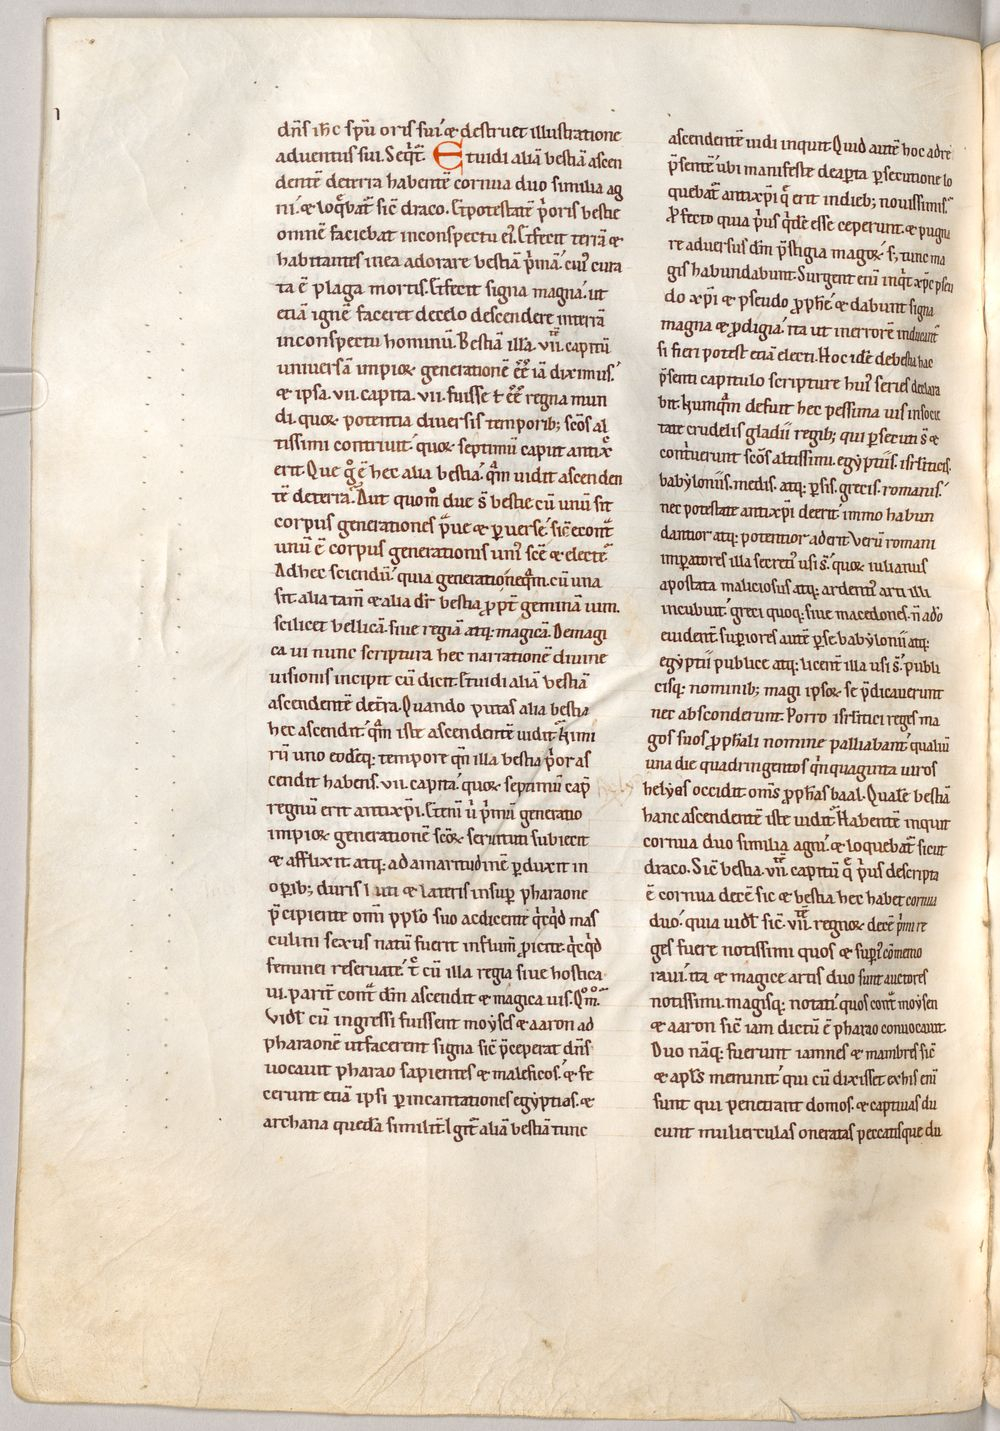 dn̄s ih̄c sp̄u oris sui ⁊ destruet illustratione
adventus sui. Seq̄t̄. Et uidi aliā bestiā ascen
dentē deterra habentē cornua duo similia ag
ni. ⁊ loq̄bat̄ sic̄ draco. Et potestatē p̄oris bestie
omnē faciebat inconspectu ei᾽. Et fecit terrā ⁊
habitantes inea adorare bestiā p̄mā. cui᾽ cura
ta ē plaga mortis. Et fecit signa magna. ut
etiā ignē faceret decelo descendere interrā
inconspectu hominū. Bestiā illā .vii. capitū
universā impioꝝ generationē eē̄ iā diximus.
⁊ ipsa .vii. capita .vii. fuisse ł eē̄ regna mun
di. quoꝝ potentia diversis temporib; sc̄os al
tissimi contriuit. quoꝝ septimū caput antix̄c
erit. Que g̊ ē hec alia bestia. quā vidit ascenden
tē deterra. Aut quom̊ due s̄ bestie cū unū sit
corpus generationes p̄ue ⁊ ꝑuerse. sic̄ econt̄
unū ē corpus generationis uni᾽ sc̄e ⁊ electe.
Ad hec sciendū quia generatio neq̄m. cū una
sit alia tam̄ ⁊ alia dr̄ bestia ꝓpt̄ geminam uim.
scilicet bellicā. siue regiā atq: magicā. De magi
ca ui nunc scriptura hec narrationē diuine
uisionis incipit cū dicit. Et uidi aliā bestiā
ascendentē det̄ra. Quando putas alia bestia
hec ascendit. quā iste ascendentē uidit. Nimi
rū uno eodēq: tempore q̄n illa bestia p̄or as
cendit habens .vii. capita. quoꝝ septimū cap̄
regnū erit antix̄pi. Etenī u̇ p̄mū generatio
impioꝝ generationē sc̄oꝝ seruituti subiecit
⁊ afflixit atq: ad amaritudinē ꝑduxit in
oꝑib; duris luti ⁊ lateris insuꝑ pharaone
p̄cipiente om̄i pp̄lo suo ac dicente q̄cq̄d mas
culini sexus natū fuerit influm̄ ꝓicite. q̄cq̄d
feminei reservate. t̄c cū illa regia siue hostica
ui. parit̄ cont̄ dm̄ ascendit ⁊ magica uis. Qm̊.
Vidl̄ cū ingressi fuissent moẏses ⁊ aaron ad
pharaonē ut facerent signa sic̄ p̄ceperat dn̄s
uocauit pharao sapientes ⁊ maleficos. ⁊ fe
cerunt etiā ipsi ꝑ incantationes egẏptias. ⁊
archana quedā similit̄. Igit̄ aliā bestiā tunc
ascendentē uidi inquit. Quid autē hoc ad rē
p̄sentē. ubi manifeste de aꝑta ꝑsecutione lo
quebat̄ antix̄pi q̄ erit indieb; nouissimis.
Profecto quia p̄us q̄dē esse ceperunt. ⁊ pugna
re adversus dm̄ p̄stigia magoꝝ. s; tunc ma
gis habundabunt. Surgent enī inq̄t xp̄c pseu
do xp̄i ⁊ pseudo ꝓph̄e. ⁊ dabunt signa
magna ⁊ ꝓdigia. ita ut in errorē inducant̄
si fieri potest etiā electi. Hoc idē de bestia hac
p̄senti capitulo scripture hui᾽ series declara
bit. Numquā defuit hec pessima uis insocie
tate crudelis gladii regib; qui ꝑsecuti s̄ ⁊
contriuerunt sc̄os altissimi. egẏptiis. isrl̄iticis.
babẏloniis. medis. atq: ꝑsis. grecis. romanis.
nec potestate antix̄pi deerit. immo habun
dantior atq: potentior aderit. Verū romani
imꝑatores illa secreti᾽ usi s̄. quoꝝ iulianus
apostata maliciosus atq: ardenti᾽ arti illi
incubuit. greci quoq: siue macedones. n̄ adeo
euident̄. suꝑiores autē ꝑse. babẏlonii atq:
egẏptii publice atq: licent̄ illa usi s̄. publi
cisq: nominib; magi ipsoꝝ se p̄dicaverunt
nec absconderunt. Porro isrl̄itici reges ma
gos suos ꝓph̄ali nomine palliabant. qualiū
una die quadringentos q̄nquaginta uiros
helẏas occidit om̄s ꝓph̄as baal. Qualē bestiā
hanc ascendentē iste vidit. Habentē inquit
cornua duo similia agni. ⁊ loquebat̄ sicut
draco. Sic̄ bestia .vii. capitū q̄ p̄us descripta
ē cornua decē sic ⁊ bestia hec habet cornua
duo. quia uidl̄ sic̄ .vii. regnoꝝ decē p̄mi re
ges fuere notissimi quos ⁊ suꝑi᾽ cōmemo
raui. ita ⁊ magice artis duo sunt auctores
notissimi. magisq: notati. quos cont̄ moẏsen
⁊ aaron sic̄ iam dictū ē pharao conuocauit.
Duo nāq: fuerunt iamnes ⁊ mambres sic̄
⁊ apl̄s meminit. qui cū dixisset exhis enī
sunt qui penetrant domos. ⁊ captiuas du
cunt mulierculas oneratas peccatis que du